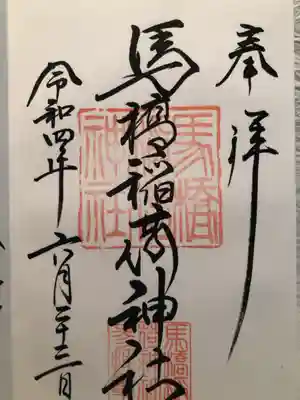 奉拝
馬橋稲荷神社
令和四年六月二十三日
馬橋神社